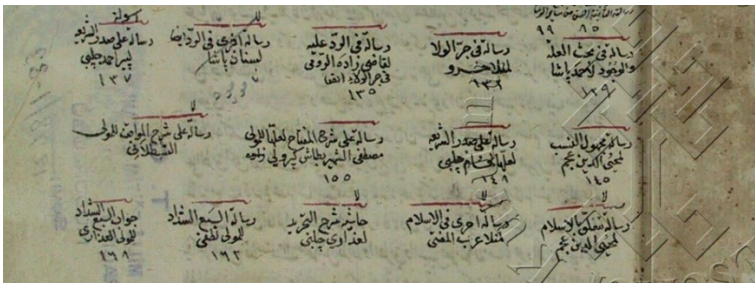 ٩٩ ٩٥
رسالة في بحث العلة
والوجود لاحمد پاشا
١٢٩
رسالة في جر الولا
لمنلا خسرو
١٣٢
رسالة في الرد عليه
لقاضي زاده الرومي
في جر الولاء
١٣٥
رسالة اخرى في الرد ايضا
لسنان پاشا
رسالة على صدر الشريعة
پير احمد چلبي
١٣٧
رسالة مجهول النسب
لمحيي الدين عجم
١٤٥
رسالة على صدر الشريعة
١٤٨
رسالة على شرح المفتاح لعلها للمولى
مصطفى الشهير بطاش كپرولي زاده
١٥٥
رسالة على شرح المواقف للمولى
رسالة تتعلق بالاسلام
لمحيي الدين عجم
رسالة اخرى في الاسلام
لمنلا عرب المفتي
حاشية شرح التجريد
لعذاري چلبي
رسالة السبع الشداد
للمولى لطفي
١٦٢
جواب السبع الشداد
للمولى العذاري
١٦٨